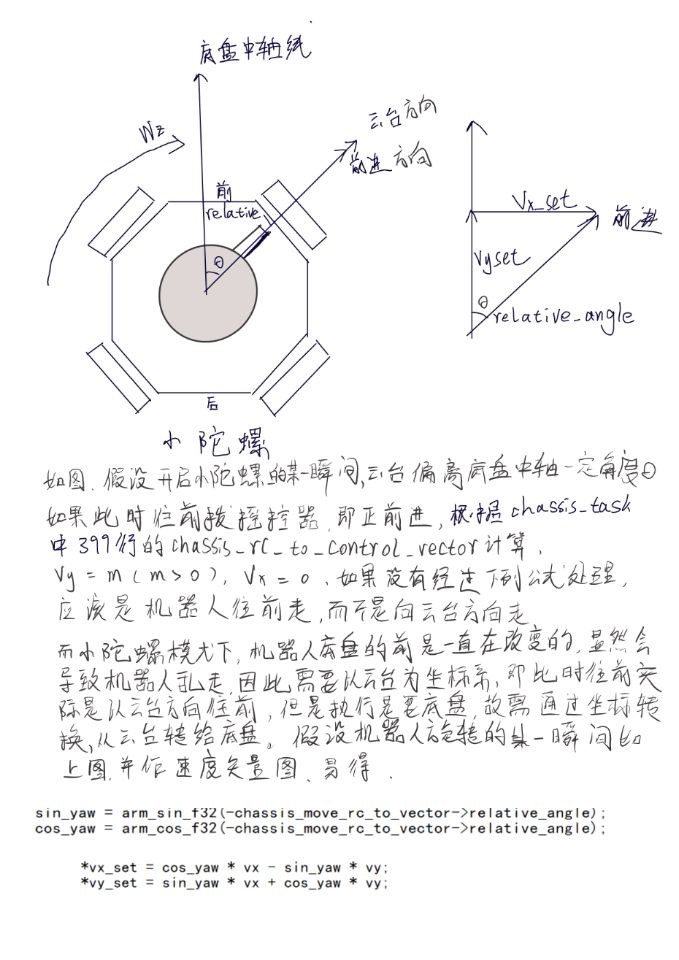 底盘中轴线
Wz
云台方向
前进方向
前
relative
θ
后
小陀螺
Vx_set
前进
Vyset
θ
relative_angle
如图.假设开启小陀螺的某一瞬间,云台偏离底盘中轴一定角度θ
如果此时往前拨摇控器,即正前进,根据chassis_task
中399行的chassis_rc_to_control_vector计算.
Vy=m(m>0),Vx=0.如果没有经过下列公式处理,
应该是机器人往前走,而不是向云台方向走
而小陀螺模式下,机器人底盘的前是一直在改变的.显然会
导致机器人乱走.因此需要以云台为坐标系,即此时往前实
际是以云台方向往前,但是执行是要底盘,故需通过坐标转
换,从云台转给底盘。假设机器人旋转的某一瞬间如
上图,并作速度矢量图.易得.
sin_yaw = arm_sin_f32(-chassis_move_rc_to_vector->relative_angle);
cos_yaw = arm_cos_f32(-chassis_move_rc_to_vector->relative_angle);
*vx_set = cos_yaw * vx - sin_yaw * vy;
*vy_set = sin_yaw * vx + cos_yaw * vy;